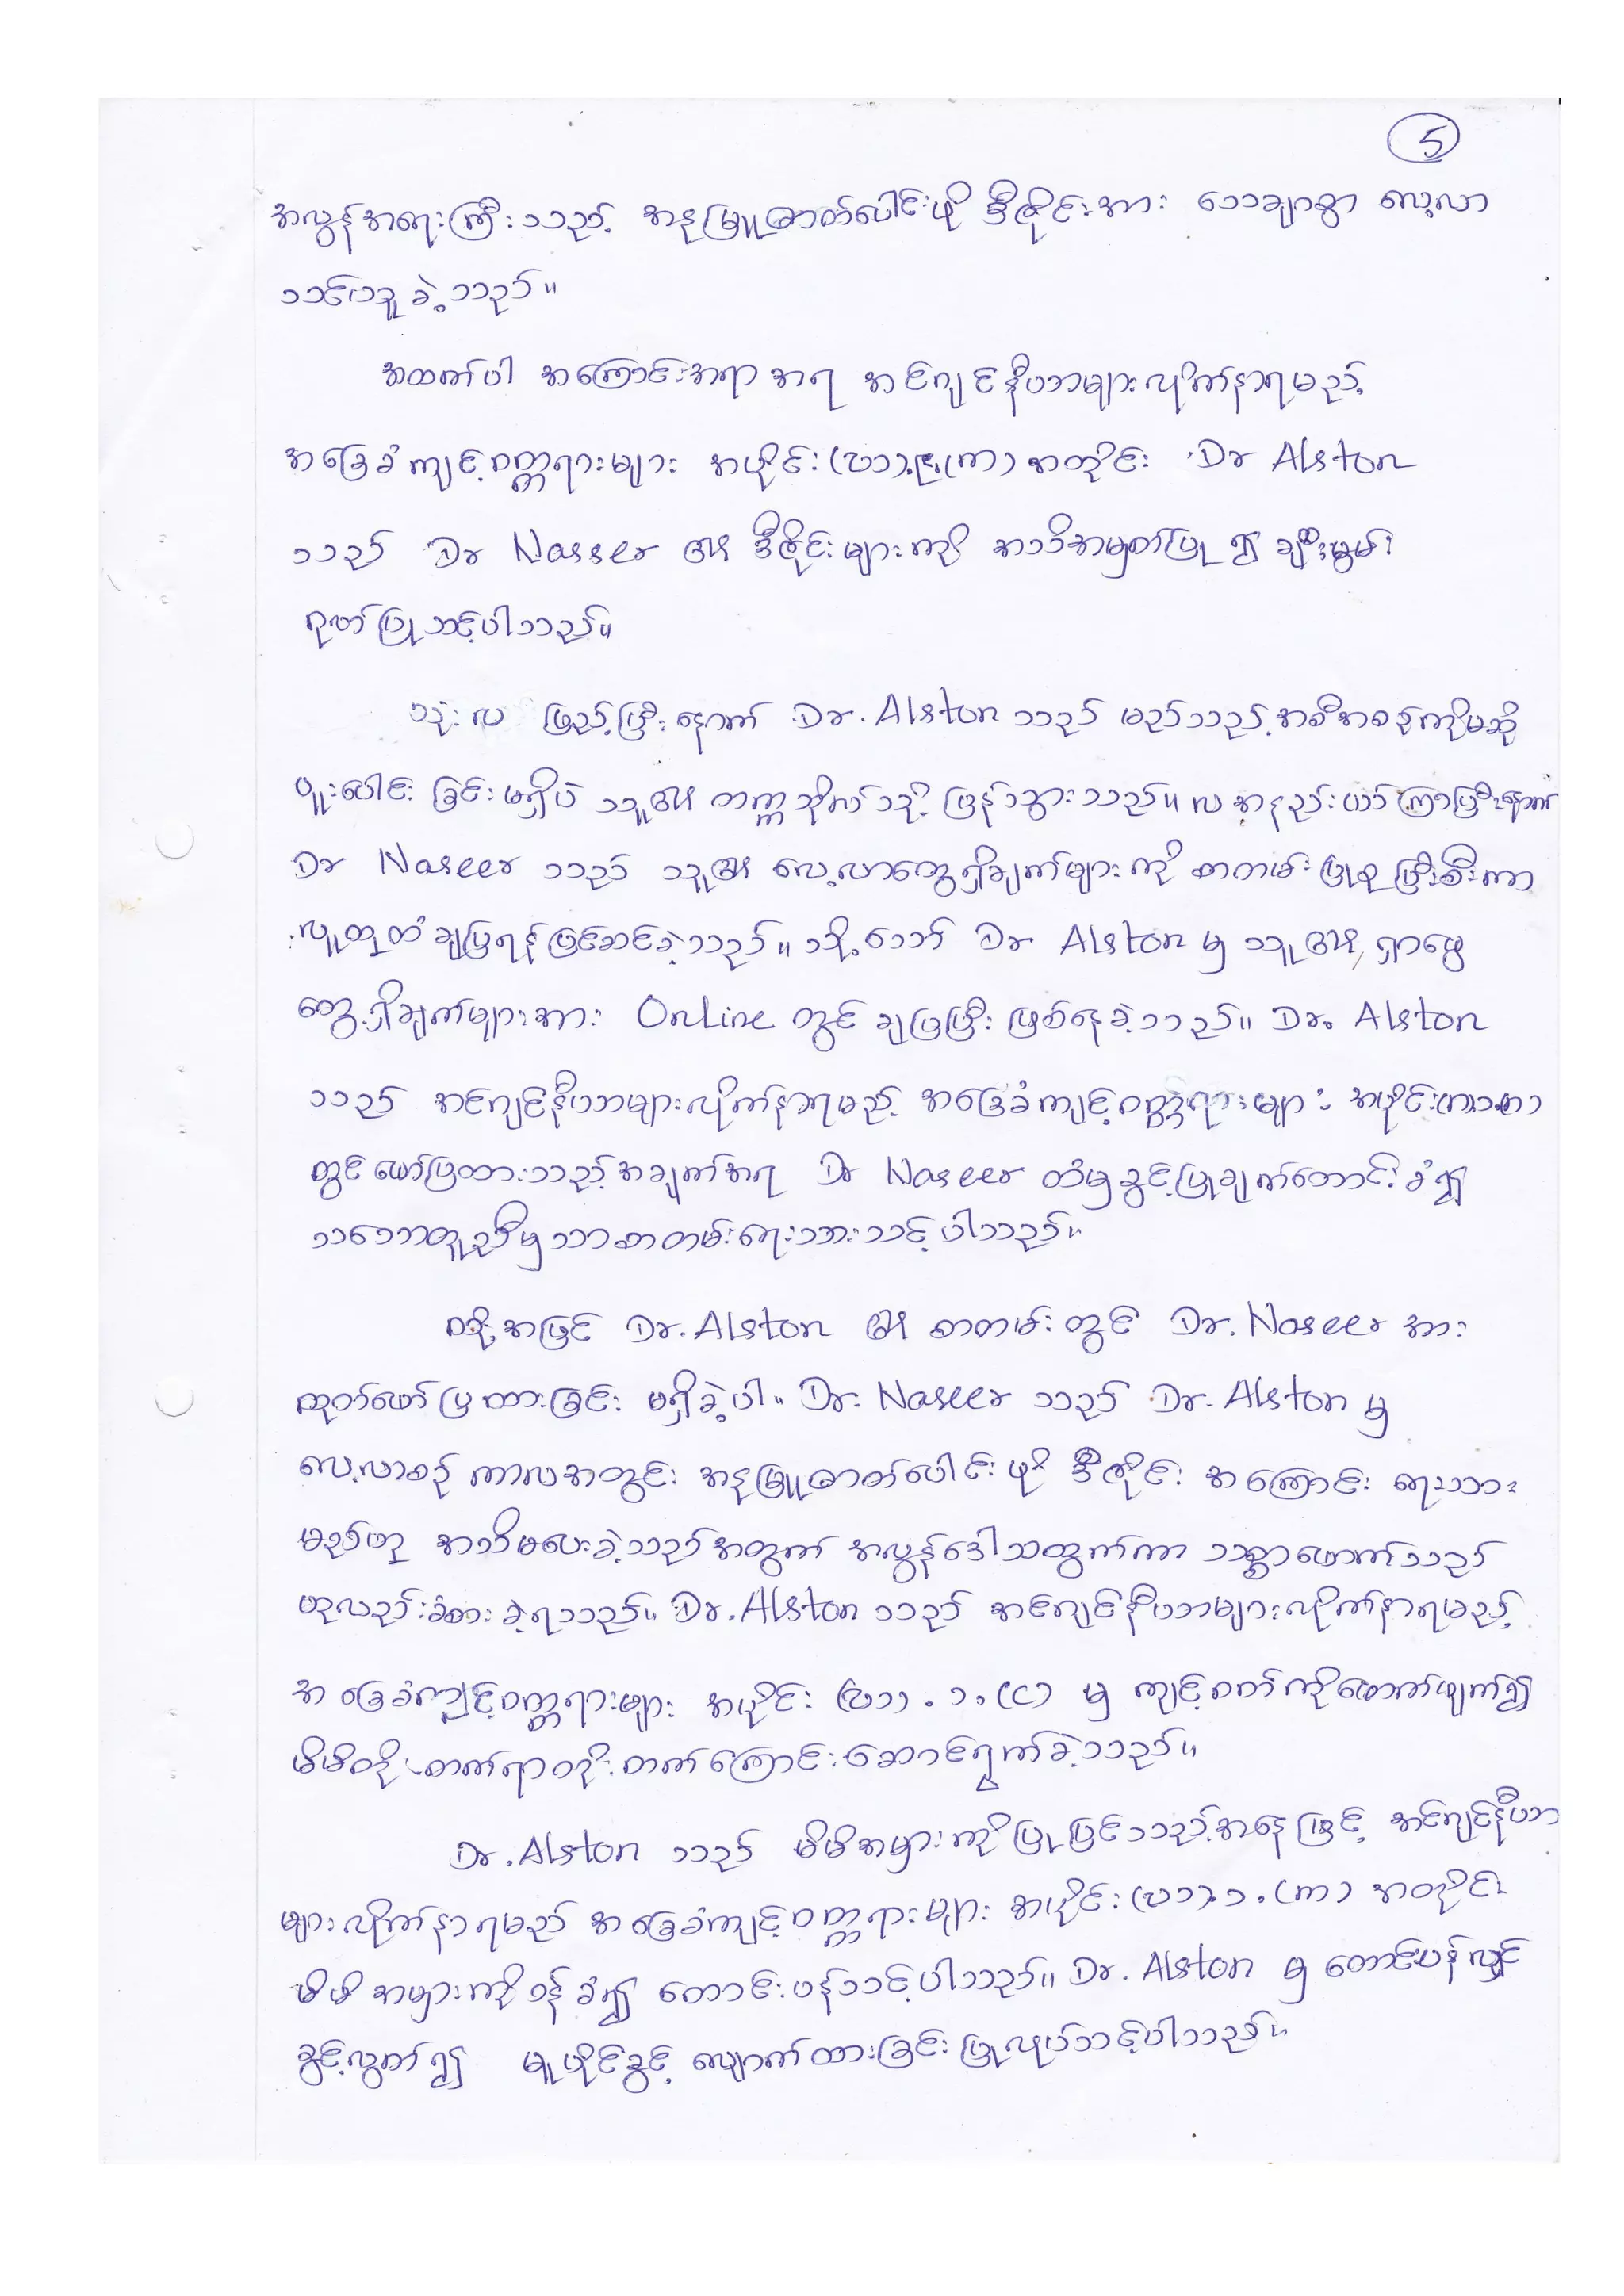 5
အလွန်အရေးကြီးသည့် အနုမြူဓာတ်ပေါင်းဖို ဒီဇိုင်းအား သေချာစွာ လေ့လာ
သင်ယူခဲ့သည်။
အထက်ပါ အကြောင်းအရာအရ အင်ဂျင်နီယာများလိုက်နာရမည့်
အခြေခံကျင့်ဝတ္တရားများ အပိုင်း (၎) အတိုင်း Dr Alston
သည် Dr Nasser ၏ ဒီဇိုင်းများကို အသိအမှတ်ပြု၍ ချီးမွမ်း
ဂုဏ်ပြုသင့်ပါသည်။
သုံးလ ပြည့်ပြီးနောက် Dr. Alston သည် မည်သည့်အစီအစဉ်ကိုမဆို
ပူးပေါင်းခြင်းမရှိပဲ သူ၏ တက္ကသိုလ်သို့ ပြန်သွားသည်။ လအနည်းငယ်ကြာပြီးနောက်
Dr Naseer သည် သူ၏ လေ့လာတွေ့ရှိချက်များကို စာတမ်းပြုစုပြီးစီးကာ
လူထုထံချပြရန်ပြင်ဆင်ခဲ့သည်။ သို့သော် Dr Alston မှ သူ၏ ရှာဖွေ
တွေ့ရှိချက်များအား Online တွင် ချပြပြီး ဖြစ်နေခဲ့သည်။ Dr. Alston
သည် အင်ဂျင်နီယာများလိုက်နာရမည့် အခြေခံကျင့်ဝတ္တရားများ အပိုင်း
တွင်ဖော်ပြထားသည့်အချက်အရ Dr Naseer ထံမှခွင့်ပြုချက်တောင်းခံ၍
သဘောတူညီမှသာစာတမ်းရေးသားသင့်ပါသည်။
၎င်းအပြင် Dr. Alston ၏ စာတမ်းတွင် Dr. Naseer အား
ထုတ်ဖော်ပြထားခြင်း မရှိခဲ့ပါ။ Dr. Naseer သည် Dr. Alston မှ
လေ့လာစဉ်ကာလအတွင်း အနုမြူဓာတ်ပေါင်းဖို ဒီဇိုင်း အကြောင်း ရေးသား
မည်ဟု အသိမပေးခဲ့သည့်အတွက် အလွန်ဒေါသထွက်ကာ သစ္စာဖောက်သည်
ဟုလည်းခံစားခဲ့ရသည်။ Dr. Alston သည် အင်ဂျင်နီယာများလိုက်နာရမည့်
အခြေခံကျင့်ဝတ္တရားများ အပိုင်း (ဃ) . ၁ . (င) မှ ကျင့်ဝတ်ကိုဖောက်ဖျက်၍
မိမိတိုးတက်ရာတိုးတက်ကြောင်းဆောင်ရွက်ခဲ့သည်။
Dr. Alston သည် မိမိအမှားကိုပြုပြင်သည့်အနေဖြင့် အင်ဂျင်နီယာ
များလိုက်နာရမည့် အခြေခံကျင့်ဝတ္တရားများ အပိုင်း (ဃ). ၁ . (က) အတိုင်း
မိမိအမှားကိုဝန်ခံ၍ တောင်းပန်သင့်ပါသည်။ Dr. Alston မှ တောင်းပန်လျှင်
ခွင့်လွှတ်၍ မူပိုင်ခွင့် လျှောက်ထားခြင်း ပြုလုပ်သင့်ပါသည်။